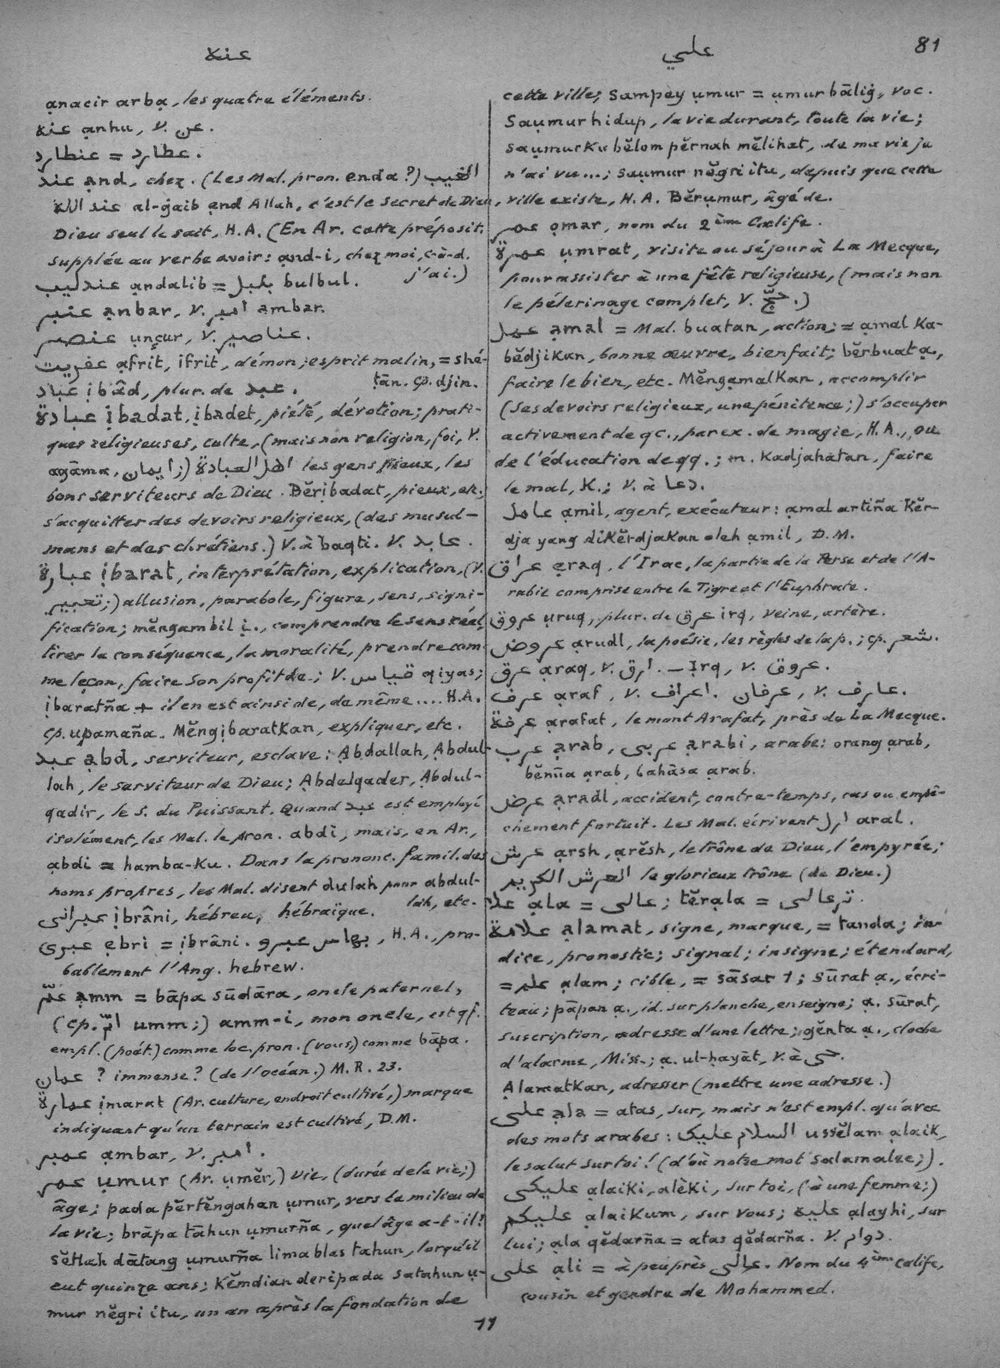 عنه
علي
81
ạnacir arbạ, les quatre éléments.
عنه ạnhu, v. عن.
عنطارد = عطارد.
عند ạnd, chez. (Les Mal. pron. enda?) الغيب
عند الله al-ġaib ạnd Allah, c'est le secret de Dieu,
Dieu seul le sait, H.A. (En Ar. cette préposit.
supplée au verbe avoir: ạnd-i, chez moi, c-à-d.
j'ai.)
عندليب ạndalib = بلبل bulbul.
عنبر ạnbar, v. امبر ambar.
عنصر ụnçur, v. عناصير.
عفريت ạfrit, ifrit, démon; esprit malin, = shé-
ṭân. cp. djin.
عباد ịbâd, plur. de عبد.
عبادة ịbadat, ịbadet, piété, dévotion; prati-
ques religieuses, culte, (mais non religion, foi, v.
agāma, ايمان;) اهل العبادة les gens pieux, les
bons serviteurs de Dieu. Bĕrịbadat, pieux, etc.
s'acquitter des devoirs religieux, (des musul-
mans et des chrétiens.) V. à baqti. V. عابد.
عبارة ịbarat, interprétation, explication, (V.
تعبير;) allusion, parabole, figure, sens, signi-
fication; mĕngambil ị., comprendre le sens réel
tirer la conséquence, la moralité, prendre com-
me leçon, faire son profit de.; V. قياس qiyas;
ịbaratña + il en est ainsi de, de même.... H.A.
cp. upamaña. Mĕngịbaratkan, expliquer, etc.
عبد ạbd, serviteur, esclave: Ạbdallah, Ạbdul-
lah, le serviteur de Dieu; Ạbdelqader, Ạbdul-
qadir, le s. du Puissant. Quand عبد est employé
isolément, les Mal. le pron. abdi, mais, en Ar.,
ạbdi = hamba-ku. Dans la prononc. famil. des
noms propres, les Mal. disent dulah pour abdul-
lah, etc.
عبراني ịbrâni, hébreu, hébraïque.
عبري ẹbri = ịbrâni. بهاس عبرو, H.A., pro-
bablement l'Ang. hebrew.
عمّ ạmm = bāpa sūdāra, oncle paternel,
(cp. امّ umm;) amm-i, mon oncle, est qf.
empl. (poét.) comme loc. pron. (vous,) comme bāpa.
عمان ? immense? (de l'océan.) M.R. 23.
عمارة ịmarat (Ar. culture, endroit cultivé,) marque
indiquant qu'un terrain est cultivé, D.M.
عمبر ạmbar, v. امبر.
عمر ụmur (Ar. ụmĕr,) vie, (durée de la vie;)
âge; pada pĕrtĕngahan ụmur, vers le milieu de
la vie; brāpa tāhun ụmurña, quel âge a-t-il?
sĕtlah dātang ụmurña lima blas tahun, lorsqu'il
eut quinze ans; kĕmdian deripada satahun ụ-
mur nĕgri itu, un an après la fondation de
cette ville; sampey ụmur = ụmur bāliġ, voc.
saụmur hidup, la vie durant, toute la vie;
saụmurku bĕlom pĕrnah mĕlihat, de ma vie je
n'ai vu...; saụmur nĕgri itu, depuis que cette
ville existe, H.A. Bĕrụmur, âgé de.
عمر ọmar, nom du 2ème Calife.
عمرة ụmrat, visite ou séjour à La Mecque,
pour assister à une fête religieuse, (mais non
le pélerinage complet, V. حجّ.)
عمل ạmal = Mal. buatan, action; = ạmal ka-
bĕdjikan, bonne œuvre, bienfait; bĕrbuat ạ.,
faire le bien, etc. Mĕngạmalkan, accomplir
(ses devoirs religieux, une pénitence;) s'occuper
activement de qc., par ex. de magie, H.A., ou
de l'éducation de qq.; m. kadjahatan, faire
le mal, K.; V. à دعا.
عامل ạmil, agent, exécuteur: ạmal artiña kĕr-
dja yang dikĕrdjakan oleh ạmil, D.M.
عراق ẹraq, l'Irac, la partie de la Perse et de l'A-
rabie comprise entre le Tigre et l'Euphrate.
عروق ụruq, plur. de عرق ịrq, veine, artère.
عروض ạrudl, la poésie, les règles de la p.; cp. شعر.
عرق ạraq, v. ارق. — Ịrq, v. عروق.
عرف ạraf, v. اعراف. عرفان, v. عارف.
عرفة ạrafat, le mont Arafat, près de La Mecque.
عرب ạrab, عربي ạrabi, arabe: orang ạrab,
bĕnña ạrab, bahāsa ạrab.
عرض ạradl, accident, contre-temps, cas ou empê-
chement fortuit. Les Mal. écrivent ارل aral.
عرش ạrsh, ạrĕsh, le trône de Dieu, l'empyrée;
العرش الكريم le glorieux trône (de Dieu.)
علا ạla = عالى; tĕrạla = ترعالى.
علامة ạlamat, signe, marque, = tanda; in-
dice, pronostic; signal; insigne; étendard,
= علم ạlam; cible, = sāsar 1; sūrat ạ., écri-
teau; pāpan ạ., id. sur planche, enseigne; ạ. sūrat,
suscription, adresse d'une lettre; gĕnta ạ., cloche
d'alarme, Miss.; ạ. ul-ḥayāt, v. à حى.
Ạlamatkan, adresser (mettre une adresse.)
على ạla = atas, sur, mais n'est empl. qu'avec
des mots arabes: السلام عليك ussĕlam ạlaik,
le salut sur toi! (d'où notre mot salamalec;).
عليكى ạlaiki, alèki, sur toi, (à une femme;)
عليكم ạlaikum, sur vous; عليه ạlayhi, sur
lui; ạla qĕdarña = atas qĕdarña. V. دوام.
على ạli = à peu près عالى. Nom du 4ème calife,
cousin et gendre de Mohammed.
11